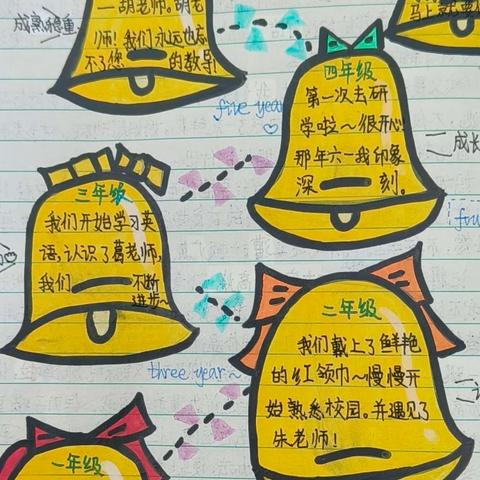 一胡老师。胡老
师！我们永远也忘
不了您一的教导！
成熟稳重
马上就要
five year
四年级
第一次去研
学啦～很开心！
那年六一我印象
深一刻。
二成长
三年级
我们开始学习英
语，认识了葛老师，
我们一不断
进步～
three year~
二年级
我们戴上了鲜艳
的红领巾～慢慢开
始熟悉校园。并遇见了
朱老师！
一年级